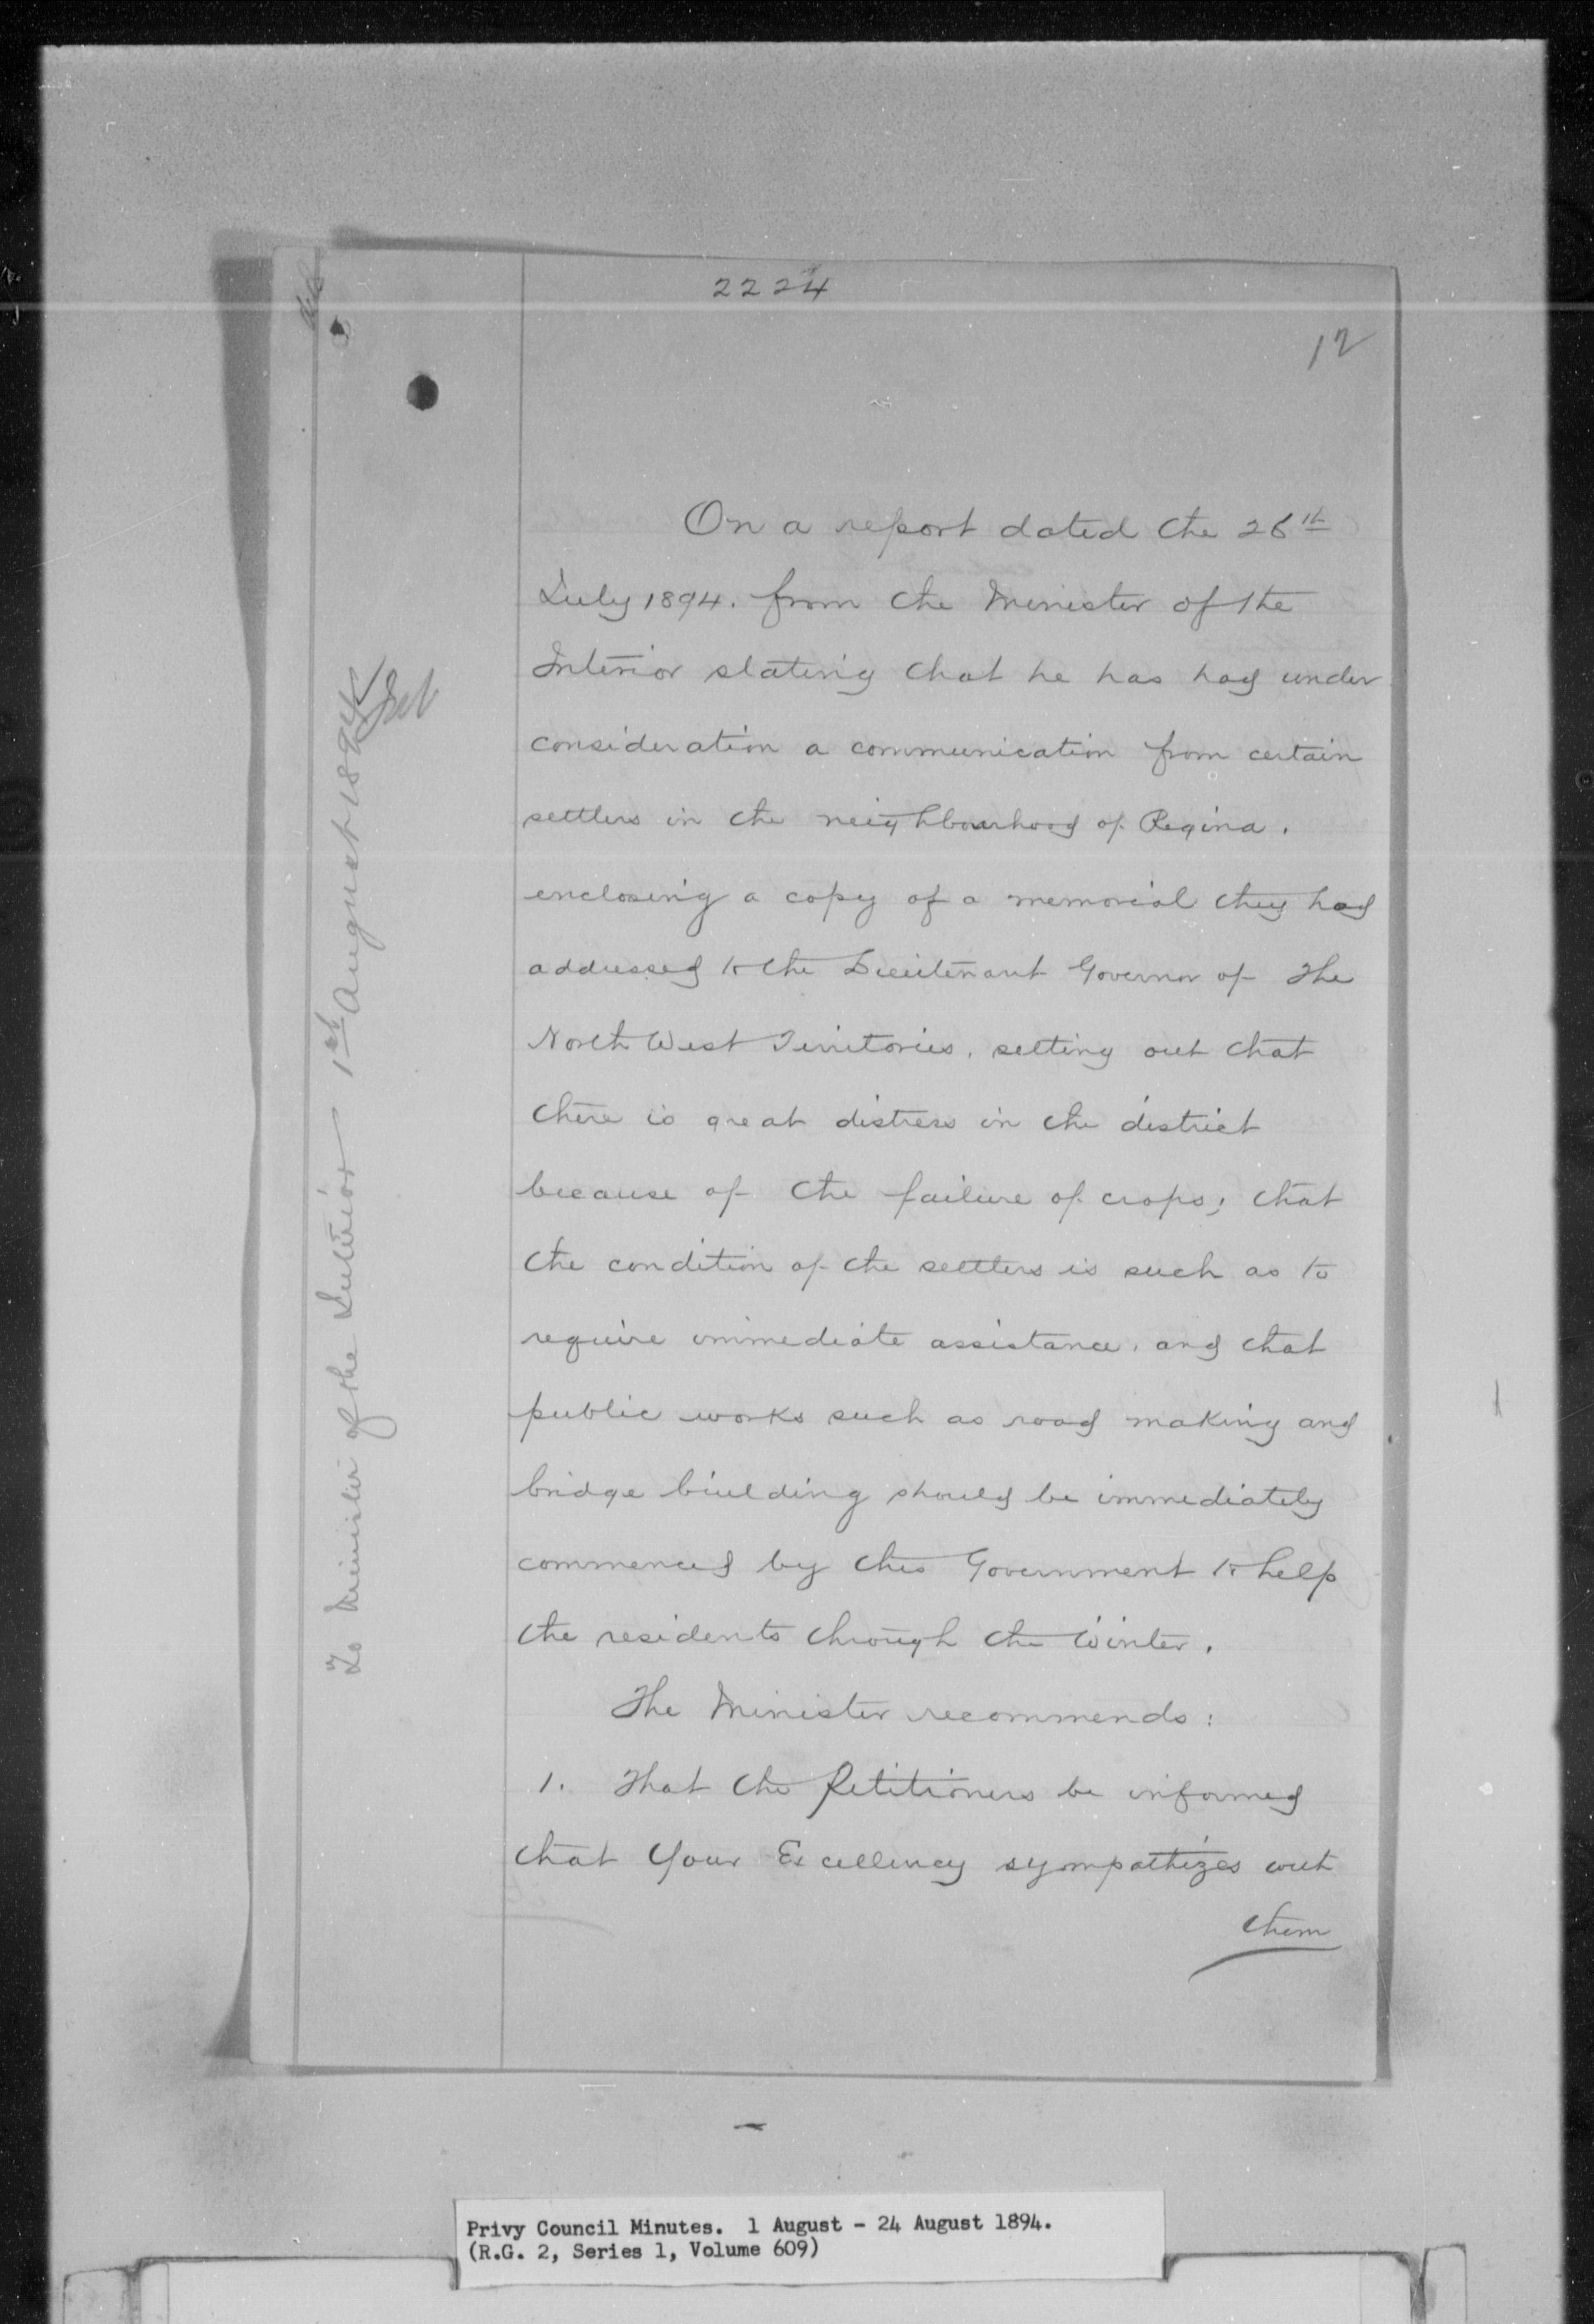 2224
12
On a report dated the 26th
July 1894. from the Minister of the
Interior stating that he has had under
consideration a communication from certain
settlers in the neighbourhood of Regina.
enclosing a copy of a memorial they had
addressed to the Lieutenant Governor of The
North West Territories, setting out that
there is great distress in the district
because of the failure of crops; that
the condition of the settlers is such as to
require immediate assistance, and that
public works such as road making and
bridge building should be immediately
commenced by this Government to help
the residents through the Winter.
The Minister recommends:
1. That the Petitioners be informed
that Your Excellency sympathizes with
them
To Minister of the Interior 1st August 1894
Privy Council Minutes. 1 August - 24 August 1894.
(R.G. 2, Series 1, Volume 609)